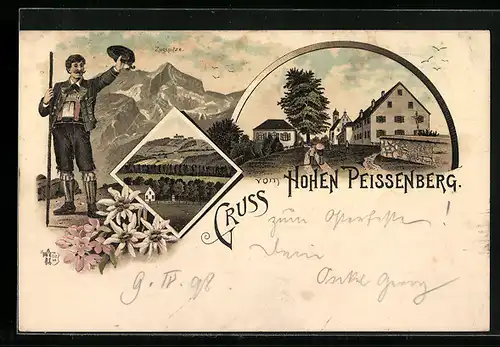 Zugspitze.
Gruss vom Hohen Peissenberg.
zum Osterfeste!
Dein
Onkel Georg
9. IV. 98